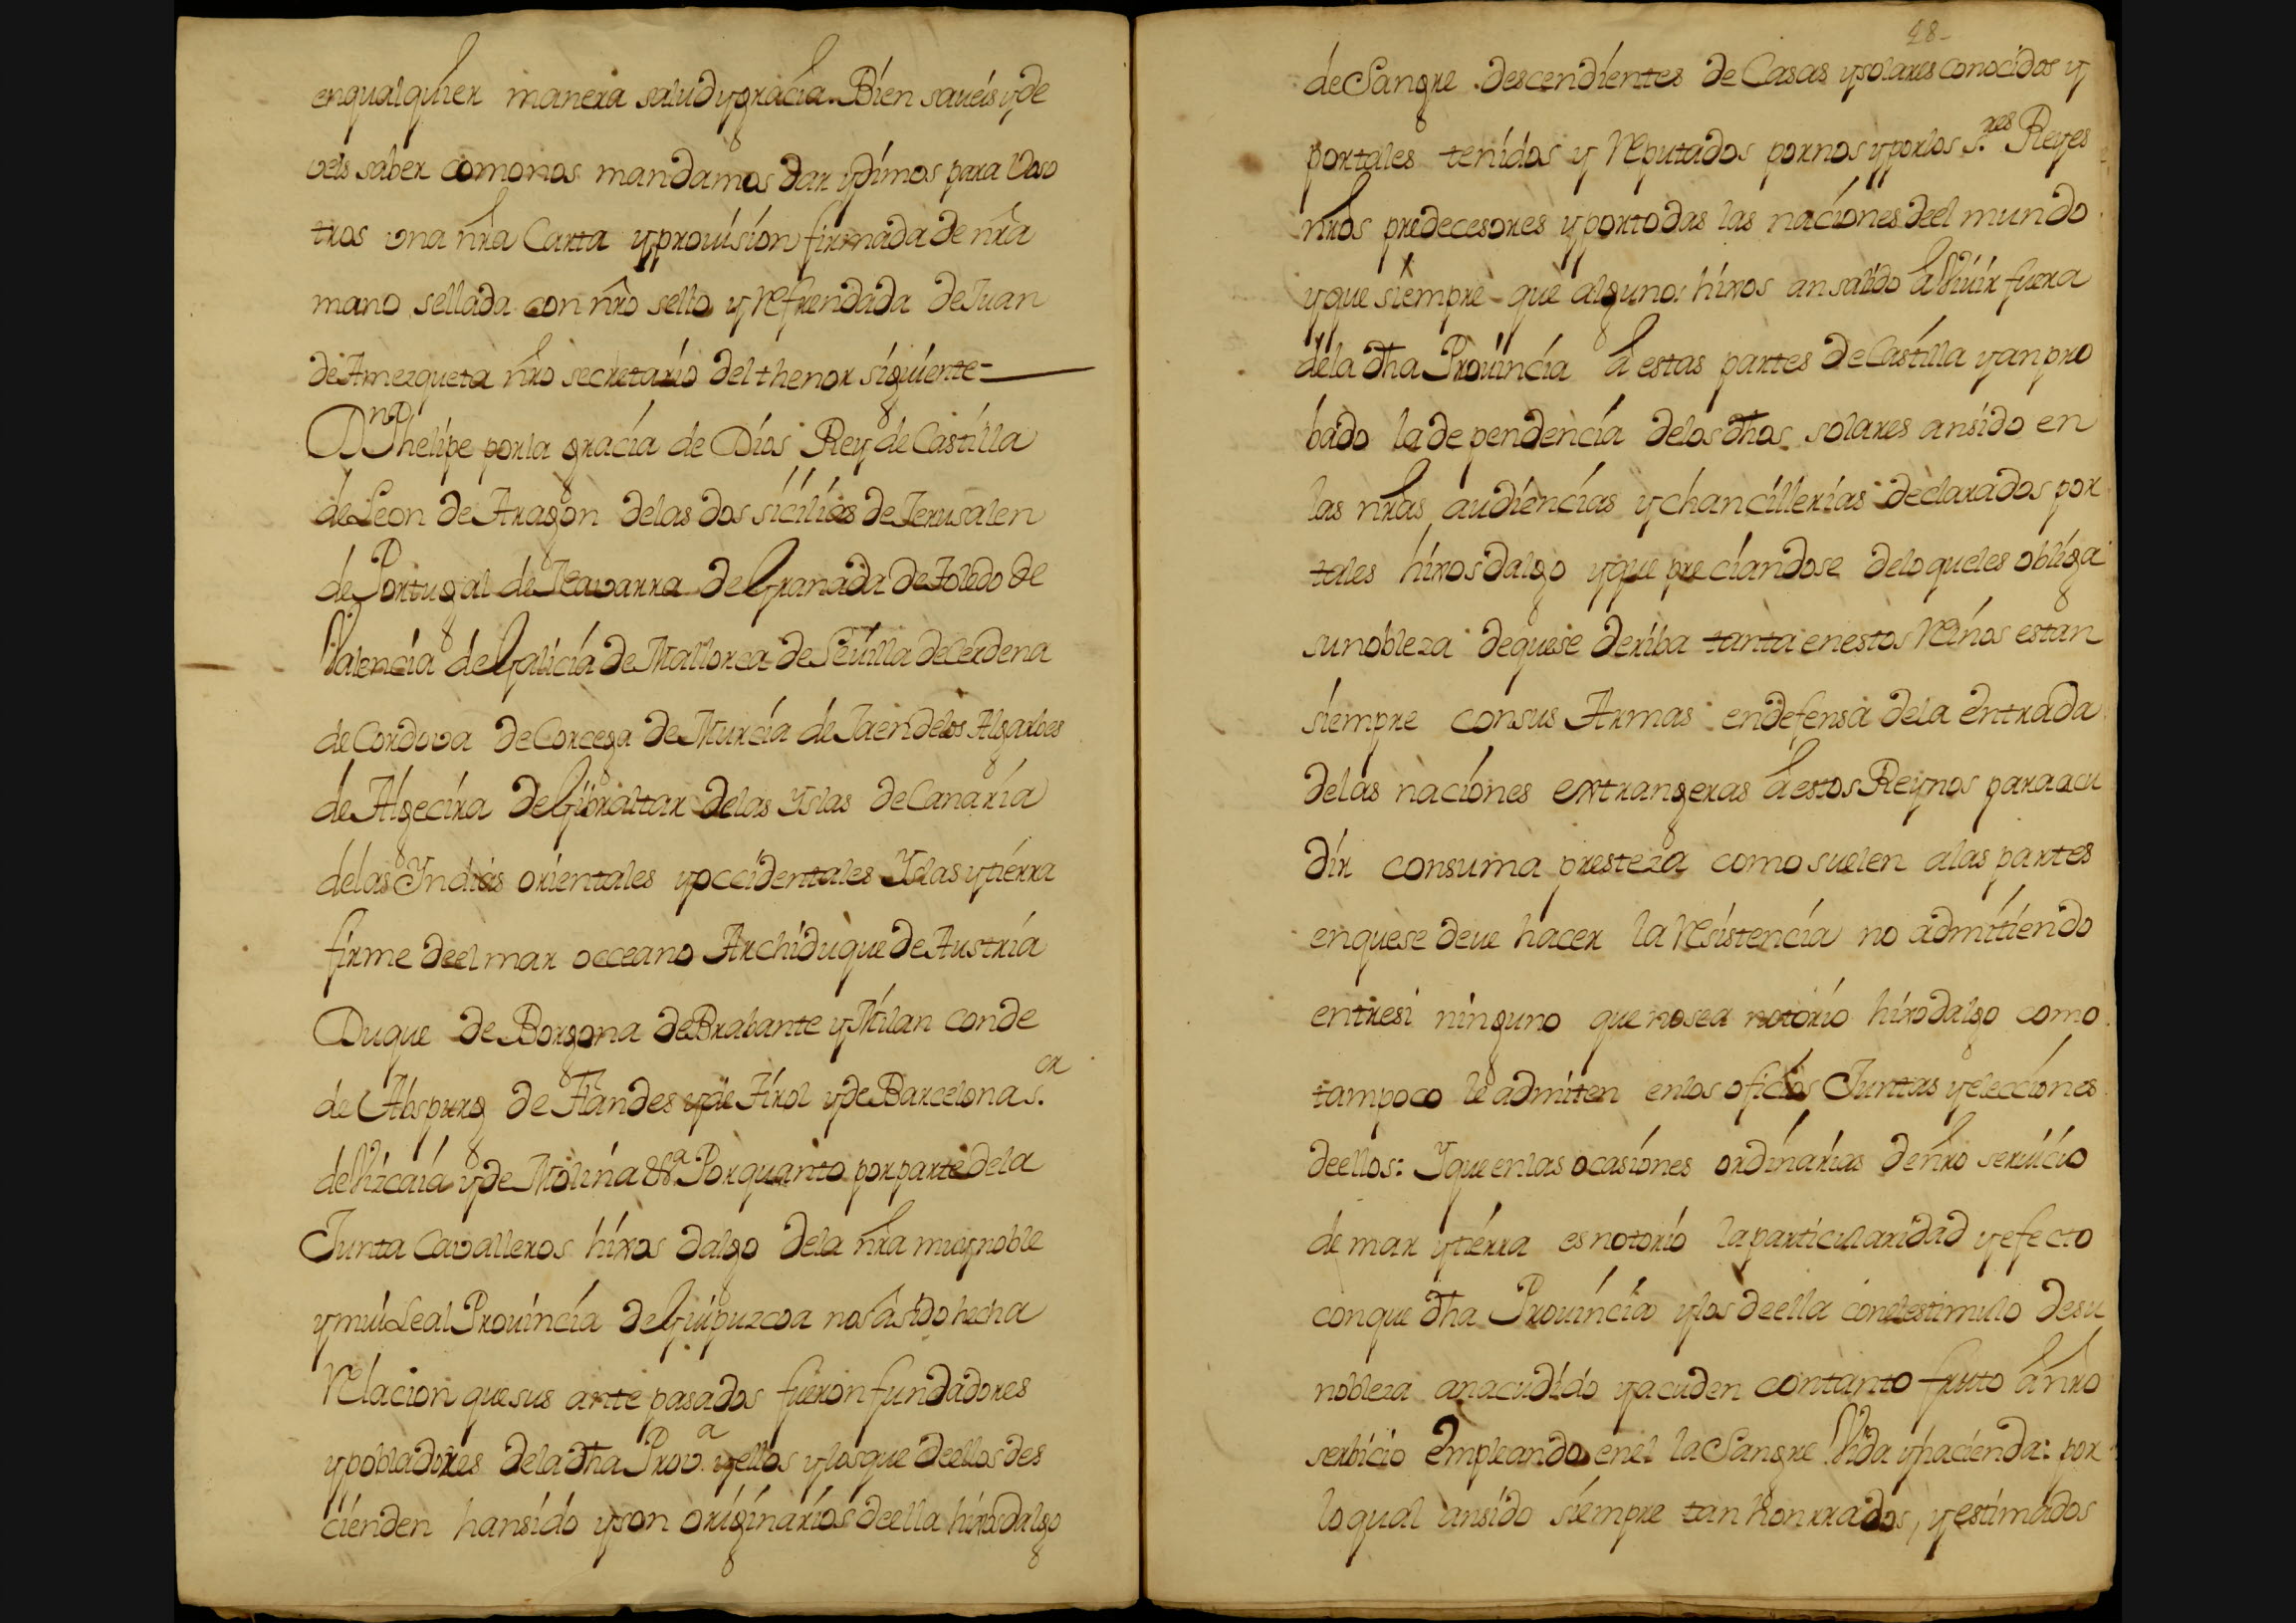 enqualquier manera salud y gracia. Bien saueis y de
veis saber como nos mandamos dar y dimos para Voso
tros vna nr̃a Carta y prouision firmada de nr̃a
mano sellada con nr̃o sello y Refrendada de Juan
de Amezqueta nr̃o secretario del thenor siguiente=
Dn Phelipe por la gracia de Dios Rey de Castilla
de Leon de Aragon de las dos sicilias de Jerusalen
de Portugal de Navarra de Granada de Toledo de
Valencia de Galicia de Mallorca de Seuilla de Cerdena
de Cordova de Corcega de Murcia de Jaen de los Algarbes
de Algecira de Gibraltar de las Yslas de Canaria
de las Yndias orientales y occidentales Yslas y tierra
firme de el mar occeano Archiduque de Austria
Duque de Borgona de Brabante y Milan conde
de Abspurg de Flandes y de Tirol y de Barcelona s.or
de Vizcaia y de Molina &a. Por quanto por parte de la
Junta Cavalleros hixos dalgo de la nr̃a muy noble
y mui Leal Prouincia de Guipuzcoa nos â sido hecha
Relacion que sus ante pasados fueron fundadores
y pobladores de la dha Prov.a y ellos y los que de ellos des
cienden han sido y son originarios de ella hixos dalgo
48-
de Sangre descendientes de Casas y solares conocidos y
por tales tenidos y Reputados por nos y por los S.res Reyes
nr̃os predecesores y por todas las naciones de el mundo
y que siempre que algunos hixos an salido â Viuir fuera
de la dha Prouincia â estas partes de Castilla y an pro
bado la dependencia de los dhos solares an sido en
las nr̃as audiencias y chancillerias declarados por
tales hixos dalgo y que preciandose de lo que les obliga
su nobleza de que se deriba tanta en estos Reinos estan
siempre con sus Armas en defensa de la entrada
de las naciones extrangeras â estos Reynos para acu
dir con suma presteza como suelen a las partes
en que se deue hacer la Resistencia no admitiendo
entre si ninguno que no sea notorio hixo dalgo como
tampoco le admiten en los oficios Juntas y elecciones
de ellos: Y que en las ocasiones ordinarias de nr̃o seruicio
de mar y tierra es notorio la particularidad y efecto
con que dha Prouincia y los de ella con el estimulo de su
nobleza an acudido y acuden con tanto fruto â nr̃o
serbicio empleando en el la Sangre Vida y hacienda: por
lo qual an sido siempre tan honrrados, y estimados